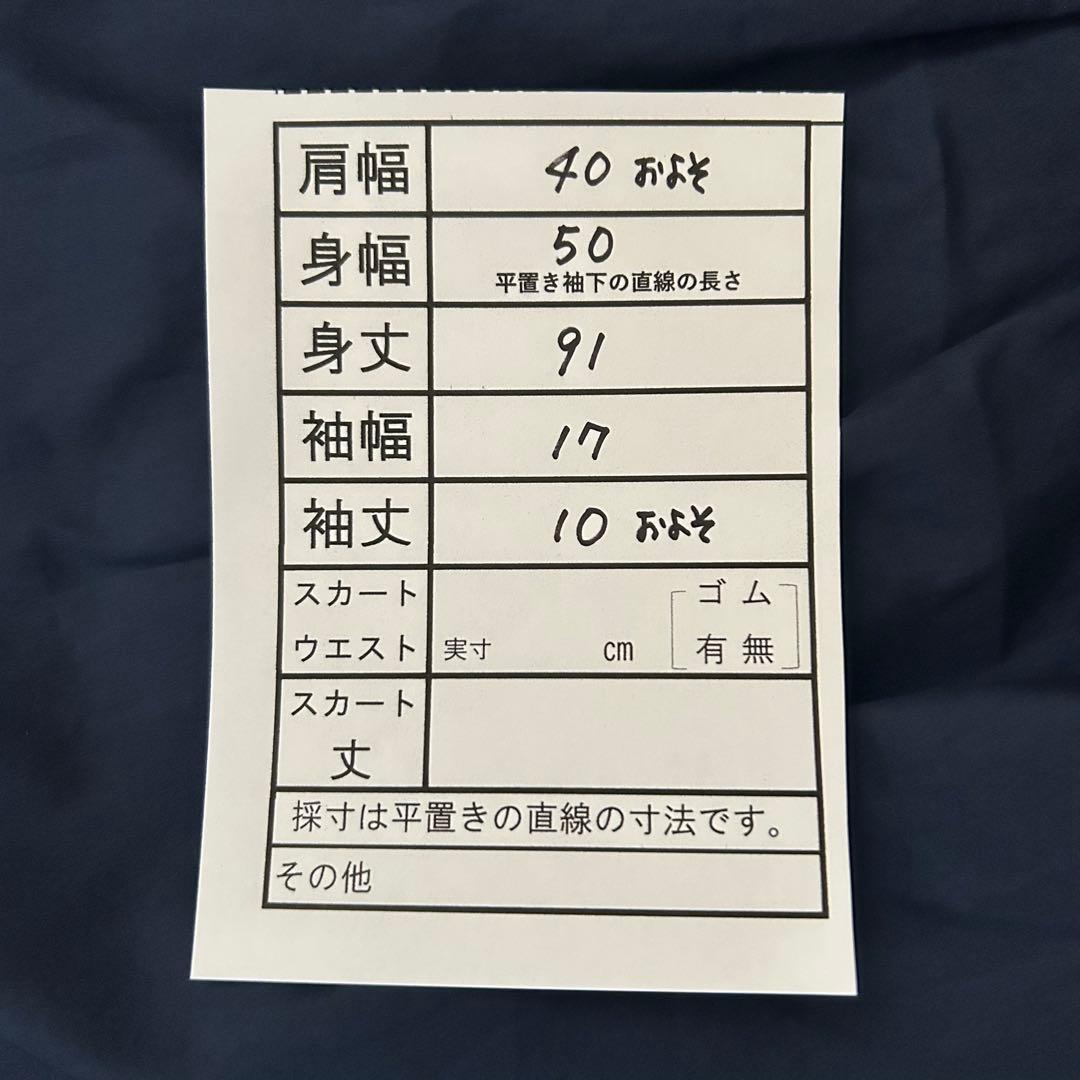 肩幅 40 およそ
身幅 50
平置き袖下の直線の長さ
身丈 91
袖幅 17
袖丈 10 およそ
スカート ゴム
ウエスト 実寸 cm 有無
スカート
丈
採寸は平置きの直線の寸法です。
その他